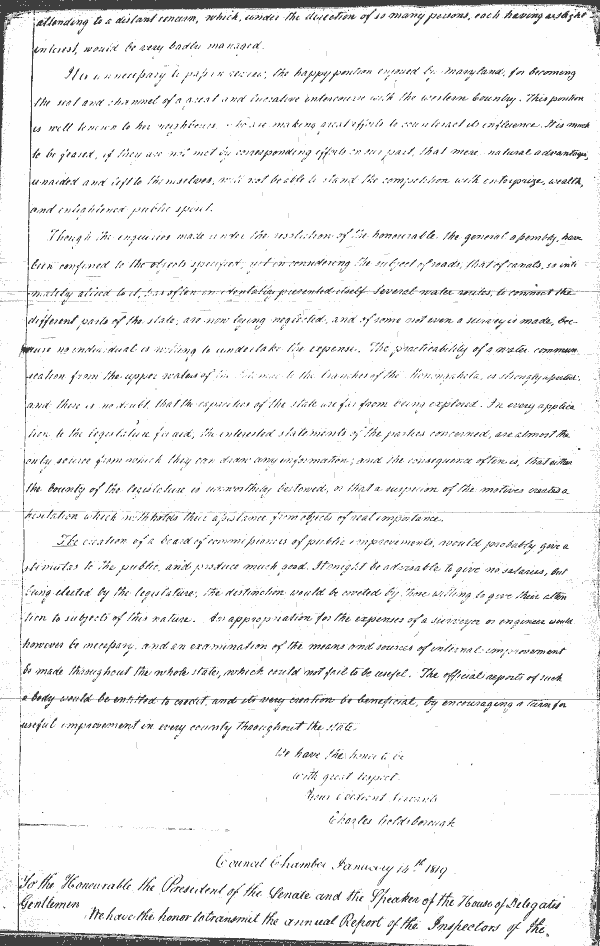 attending to a distant concern, which, under the direction of so many persons, each having a slight
interest, would be very badly managed.
It is unnecessary to pass in review, the happy position enjoyed by Maryland, for becoming
the seat and channel of a great and lucrative intercourse with the western Country. This position
is well known to her neighbours, who are making great efforts to counteract its influence. It is much
to be feared, if they are not met by corresponding efforts on our part, that mere natural advantages,
unaided and left to themselves, will not be able to stand the competition with enterprize, wealth,
and enlightened public spirit.
Though the enquiries made under the resolution of the honourable the general assembly, have
been confined to the objects specified, yet in considering the subject of roads, that of canals, so inti
mately allied to it, has often presented itself. Several water routes, to connect the
different parts of the state, are now lying neglected, and of some not even a survey is made, bec
ause no individual is willing to undertake the expense. The practicability of a water commun
ication from the upper waters of the to the branches of the Monongahela, is strongly asserted,
and there is no doubt, that the capacities of the state are far from being explored. In every applica
tion to the legislature for aid, the interested statements of the parties concerned, are almost the
only source from which they can draw any information; and the consequence often is, that either
the bounty of the legislature is unworthily bestowed, or that a suspicion of the motives creates a
hesitation which withholds their assistance from objects of real importance.
The creation of a board of commissioners of public improvements, would probably give a
stimulus to the public, and produce much good. It might be advisable to give no salaries, but
being elected by the legislature, the distinction would be coveted by those willing to give their atten
tion to subjects of this nature. An appropriation for the expenses of a surveyor or engineer would
however be necessary, and an examination of the means and sources of internal improvement
be made throughout the whole state, which could not fail to be useful. The official reports of such
a body would be entitled to credit, and its very creation be beneficial, by encouraging a turn for
useful improvement in every county throughout the state.
We have the honor to be
with great respect
Your obedient servants
Charles Goldsborough
Council Chamber January 14th 1819
To the Honourable the President of the Senate and the Speaker of the House of Delegates
Gentlemen
We have the honor to transmit the annual Report of the Inspectors of the